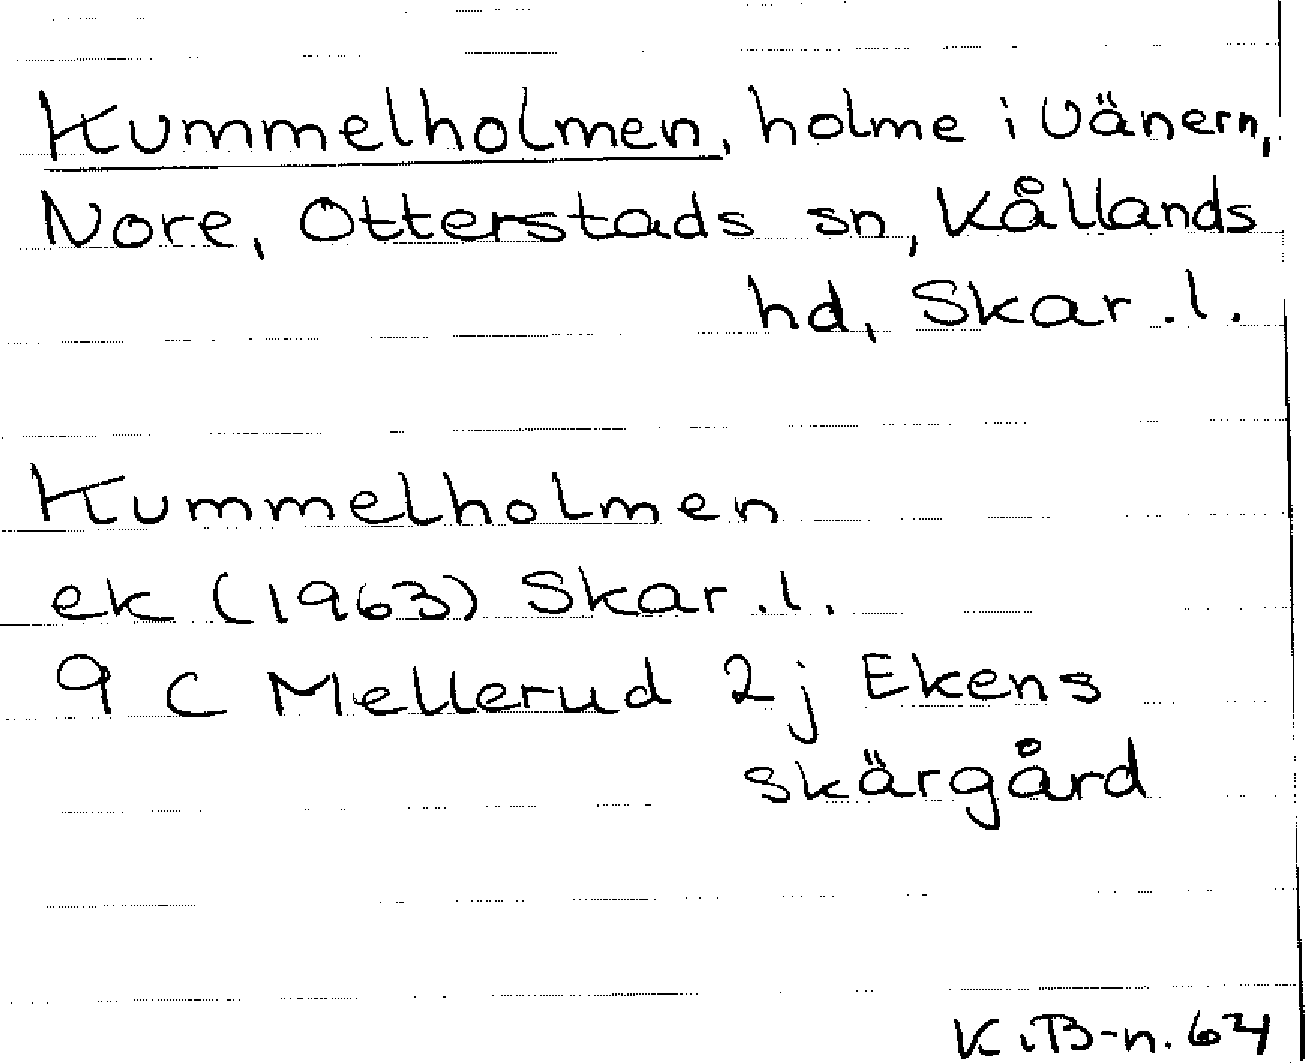 Kummelholmen, holme i Vänern,
Nore, Otterstads sn, Kållands
hd, Skar. l.
Kummelholmen
ek (1963) Skar. l.
9 C Mellerud 2j Ekens
skärgård
K i B-n. 64